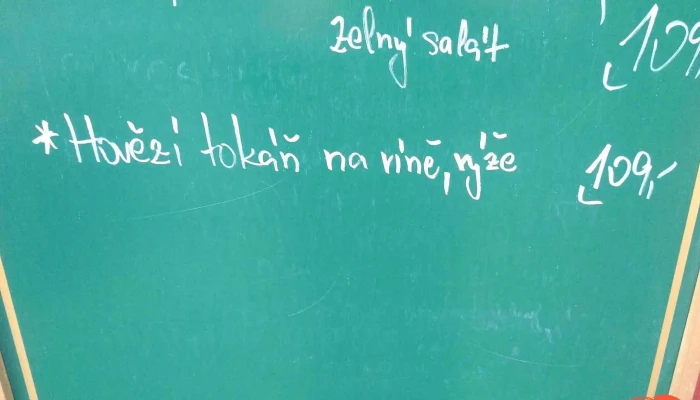 zelný salát 109,
*Hovězí tokáň na víně, rýže 109,-